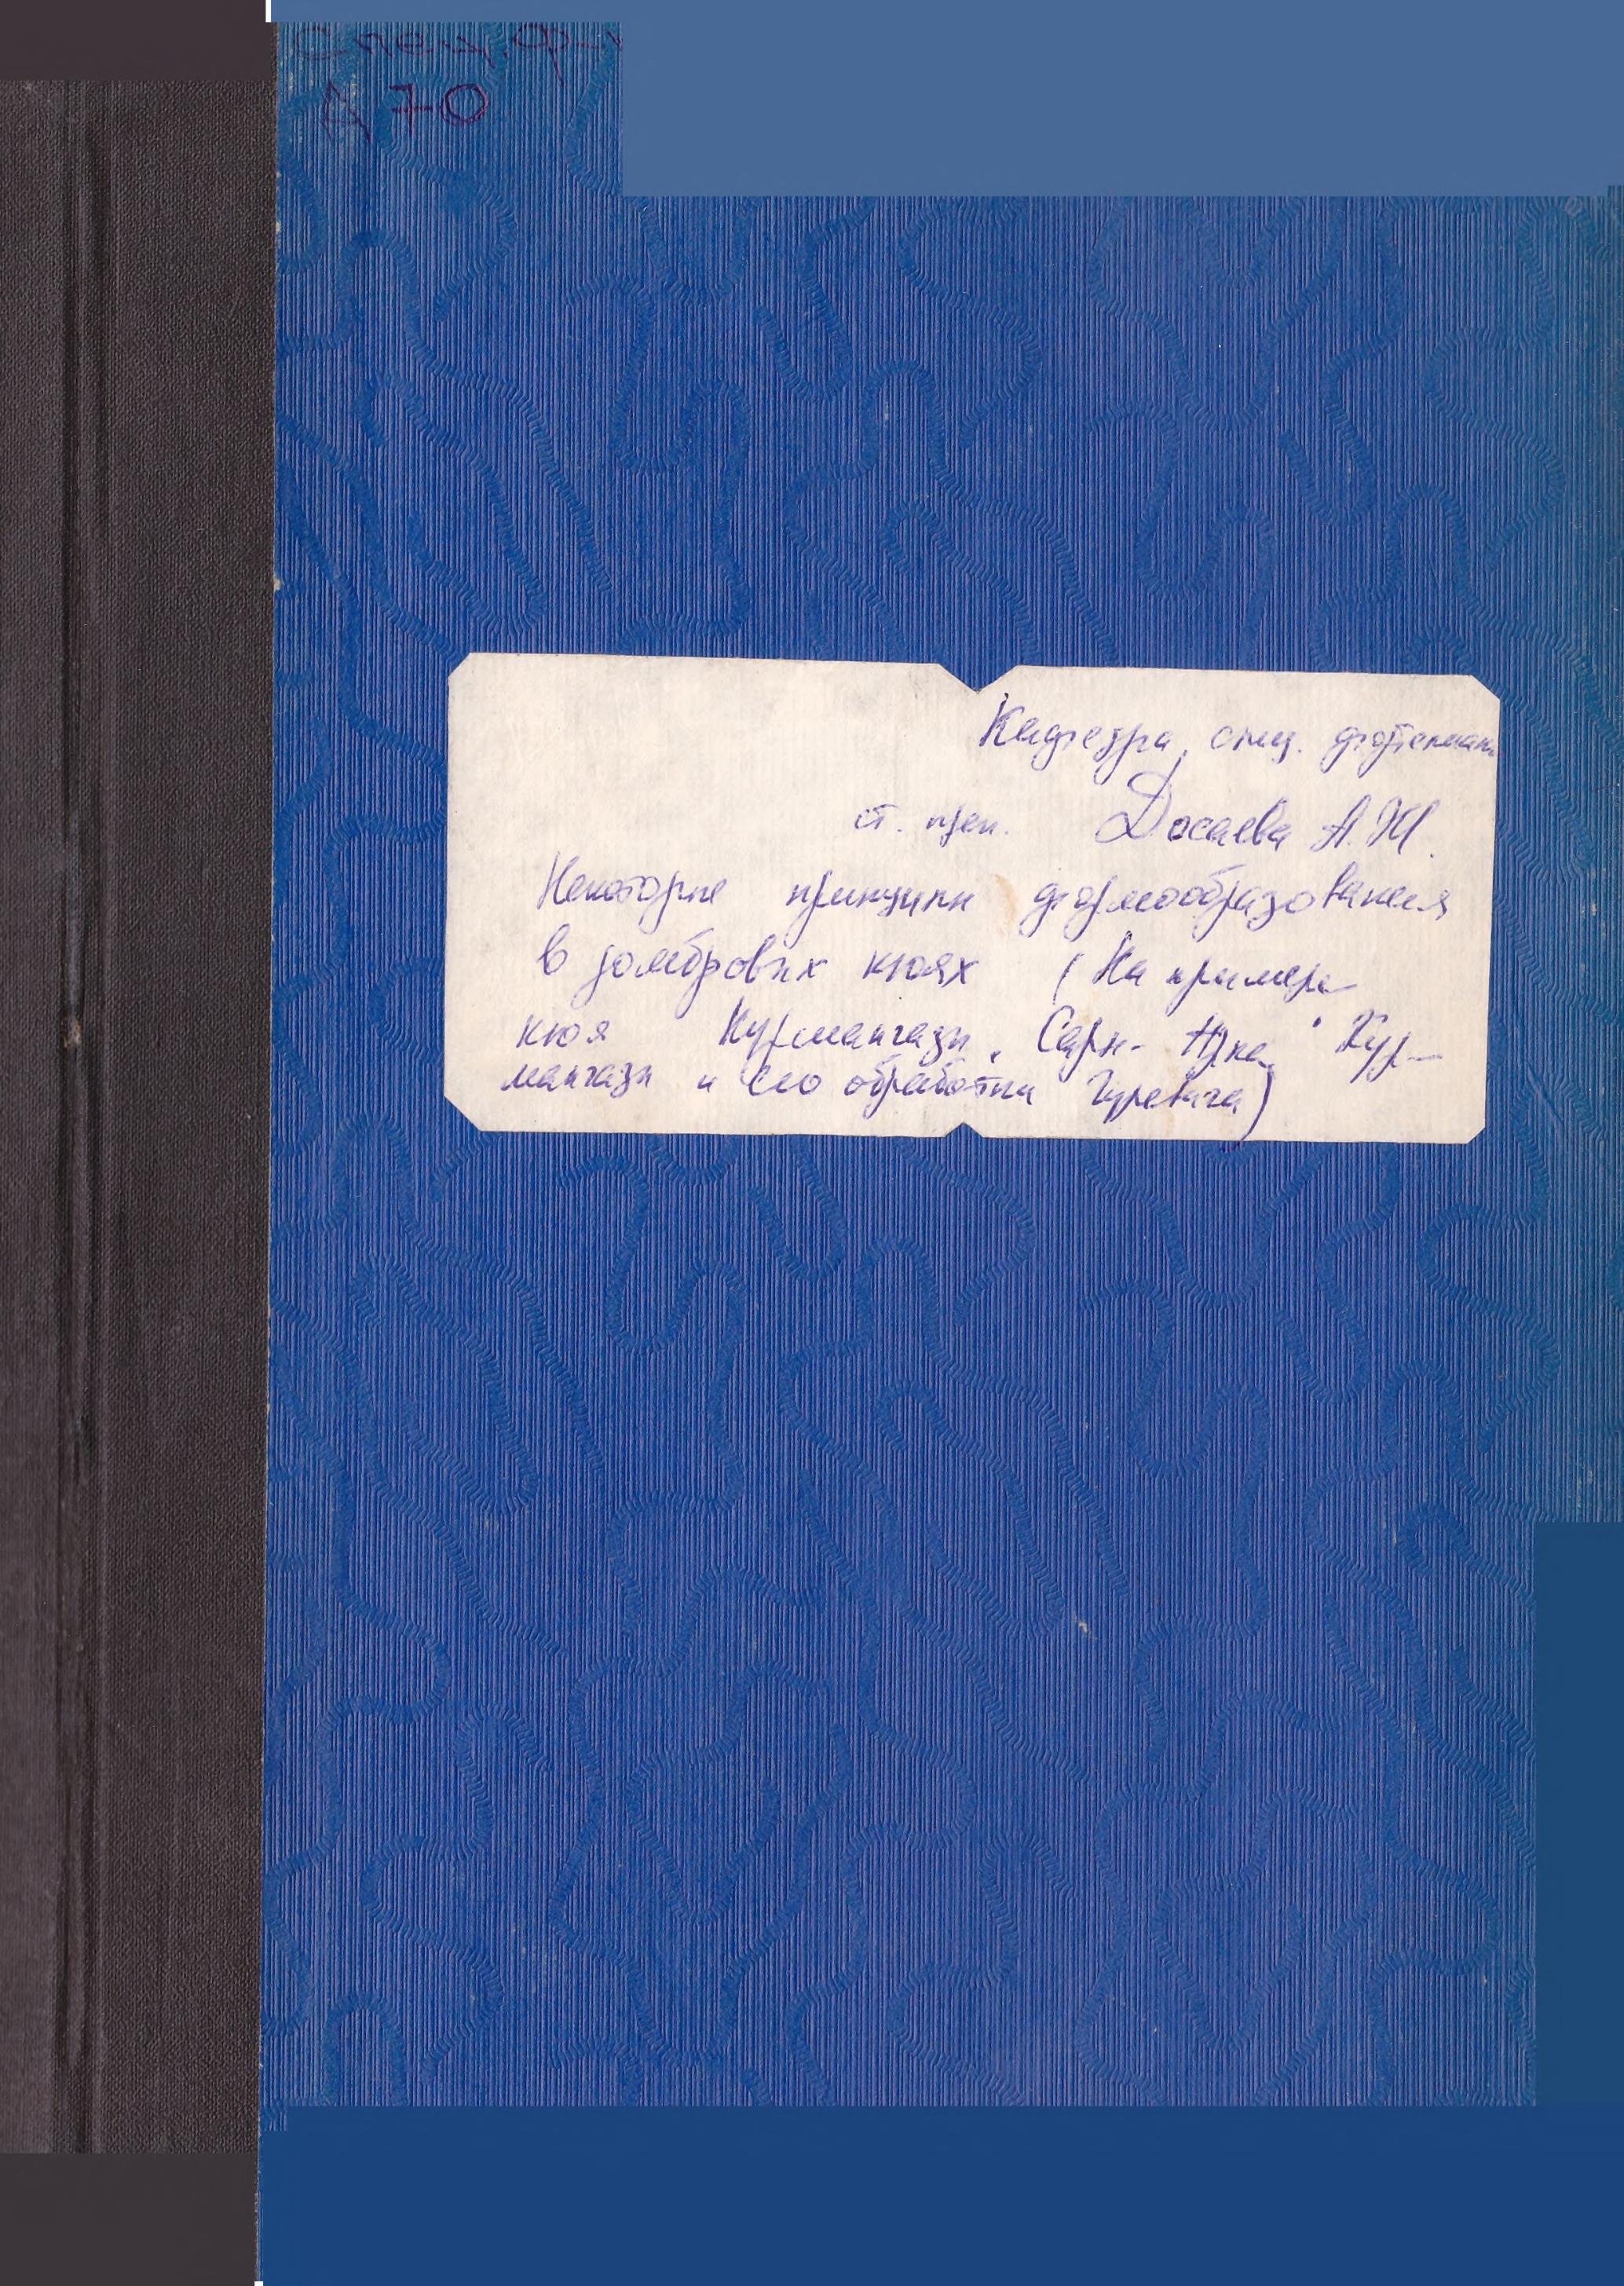 Спец. ф-
Д 70
Кафедра спец. фортепиан
ст. преп. Досаева А.Ж.
Некоторые принципы формообразования
в домбровых кюях (На примере
кюя Курмангазы "Сары-Арка" Кур-
мангазы и его обработки Гуревича)